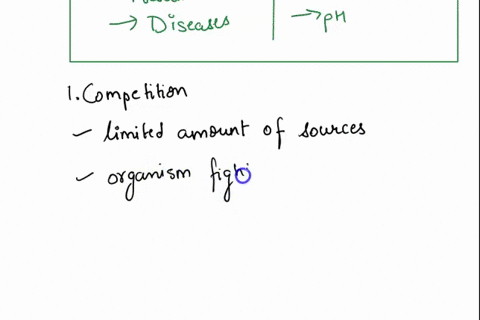 → Diseases
→ pH
1. Competition
✓ limited amount of sources
✓ organism figh